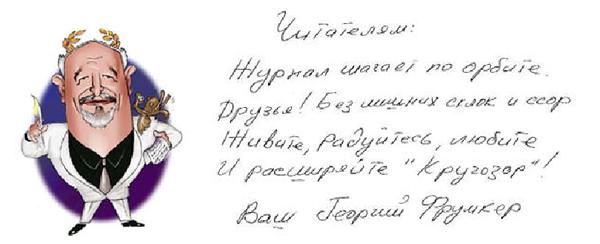 Читателям:
Журнал шагает по орбите.
Друзья! Без лишних склок и ссор
Живите, радуйтесь, любите
И расширяйте "Кругозор"!
Ваш Георгий Фрумкер